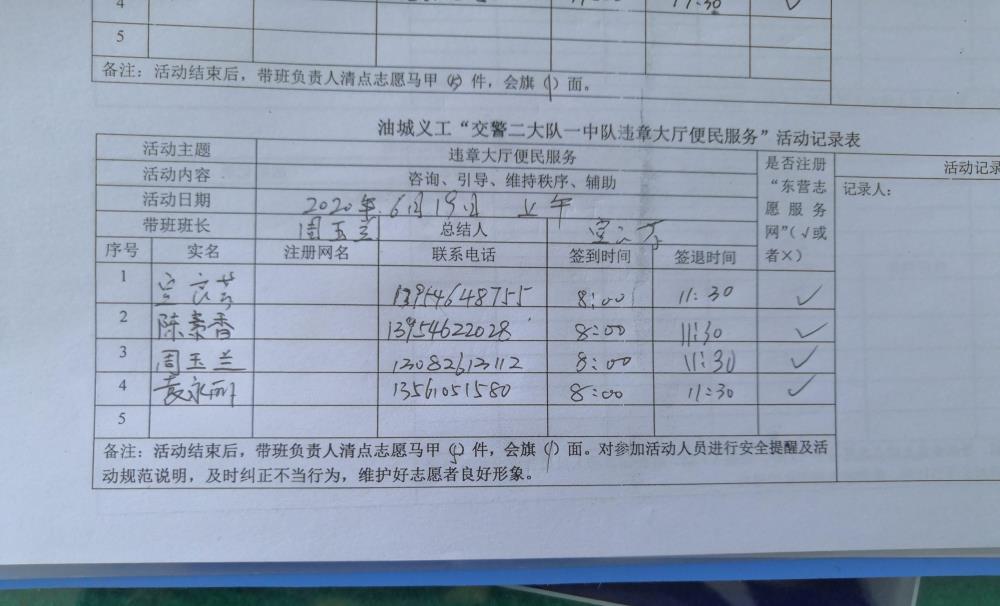 4 11:30 √
5
备注：活动结束后，带班负责人清点志愿马甲（ ）件，会旗（1）面。
油城义工“交警二大队一中队违章大厅便民服务”活动记录表
活动主题 违章大厅便民服务 是否注册“东营志愿服务网”（√或者×） 活动记录
活动内容 咨询、引导、维持秩序、辅助 记录人：
活动日期 2020年6月19日 上午
带班班长 周玉兰 总结人
序号 实名 注册网名 联系电话 签到时间 签退时间
1 13954648755 8:00 11:30 √
2 陈素香 13954622028 8:00 11:30 √
3 周玉兰 13082613112 8:00 11:30 √
4 袁永丽 13561051580 8:00 11:30 √
5
备注：活动结束后，带班负责人清点志愿马甲（ ）件，会旗（1）面。对参加活动人员进行安全提醒及活
动规范说明，及时纠正不当行为，维护好志愿者良好形象。